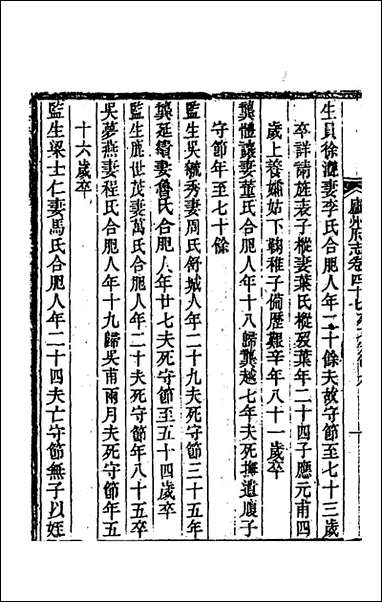 廬州府志卷四十七
生員徐瀠妻李氏合肥人年二十餘夫故守節至七十三歲
卒詳請旌表子樅妻葉氏樅歿葉年二十四子應元甫四
歲上養孀姑下鞠稚子備歷艱辛年八十一歲卒
龔體讓妻董氏合肥人年十八歸龔越七年夫死撫遺腹子
守節年至七十餘
監生吳毓秀妻周氏舒城人年二十九夫死守節三十五年
龔延繢妻魯氏合肥人年廿七夫死守節至五十四歲卒
監生龐世茂妻萬氏合肥人年二十夫死守節年八十五卒
吳夢燕妻程氏合肥人年十九歸吳甫兩月夫死守節年五
十六歲卒
監生梁士仁妻馬氏合肥人年二十四夫亡守節無子以姪